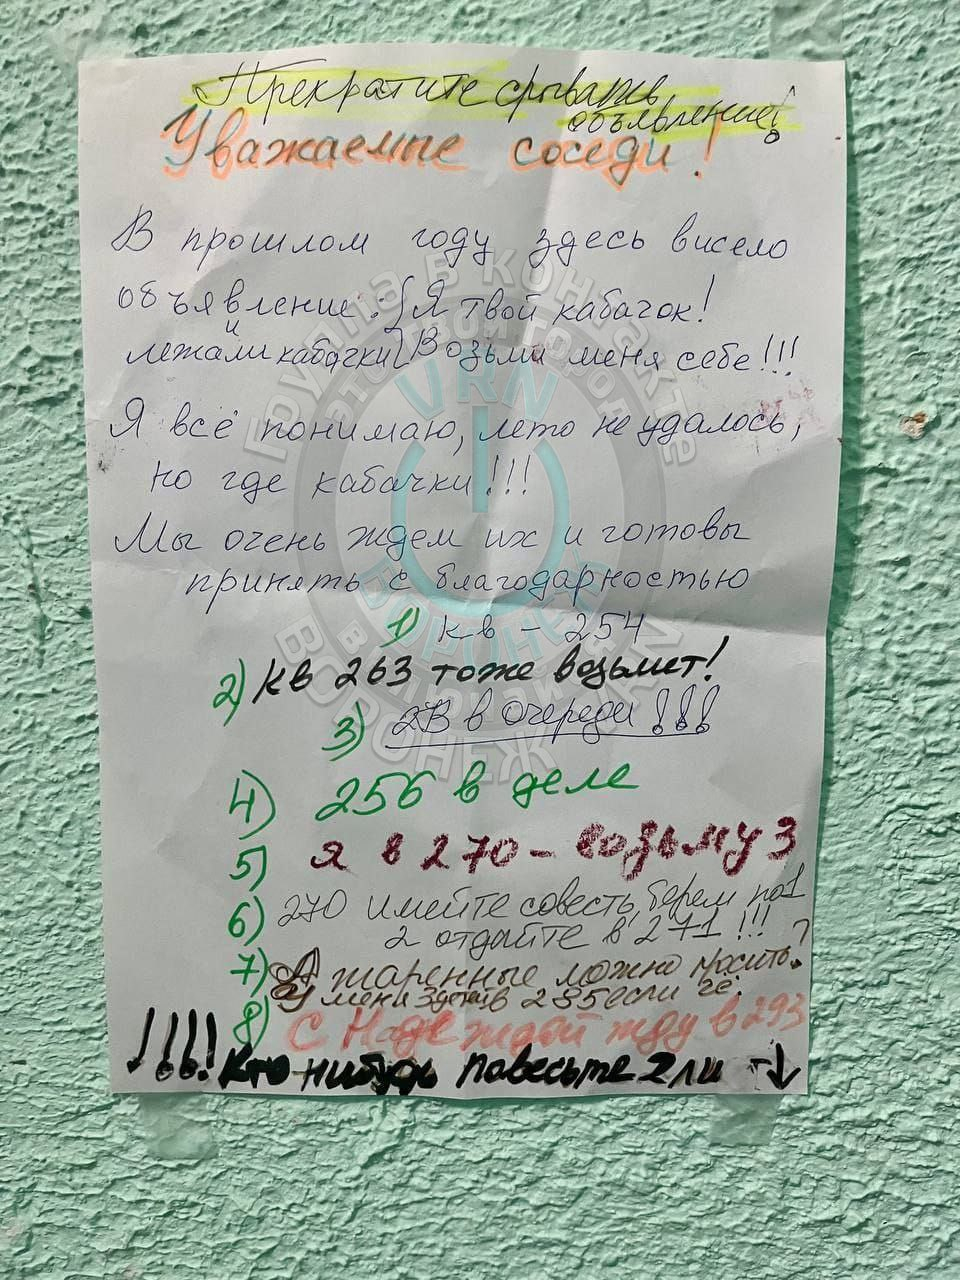 Прекратите срывать
объявление!
Уважаемые соседи!
В прошлом году здесь висело
объявление: {Я твой кабачок!
и
лежали кабачки} Возьми меня себе!!!
Я всё понимаю, лето не удалось,
но где кабачки!!!
Мы очень ждем их и готовы
принять с благодарностью
1) кв - 254
2) Кв 263 тоже возьмет!
3) 2В в очереди!!!
4) 256 в деле
5) Я в 270 - возьму 3
6) 270 имейте совесть, берем по 1
2 отдайте в 271!!!
7) А жаренные можно просить?
У меня 3 детей в 235 если чё.
8) С Надеждой жду в 293
!!!! Кто нибудь повесьте 2 ли
Группа В контакте
VRN
Воронеж
ВОРОНЕЖ